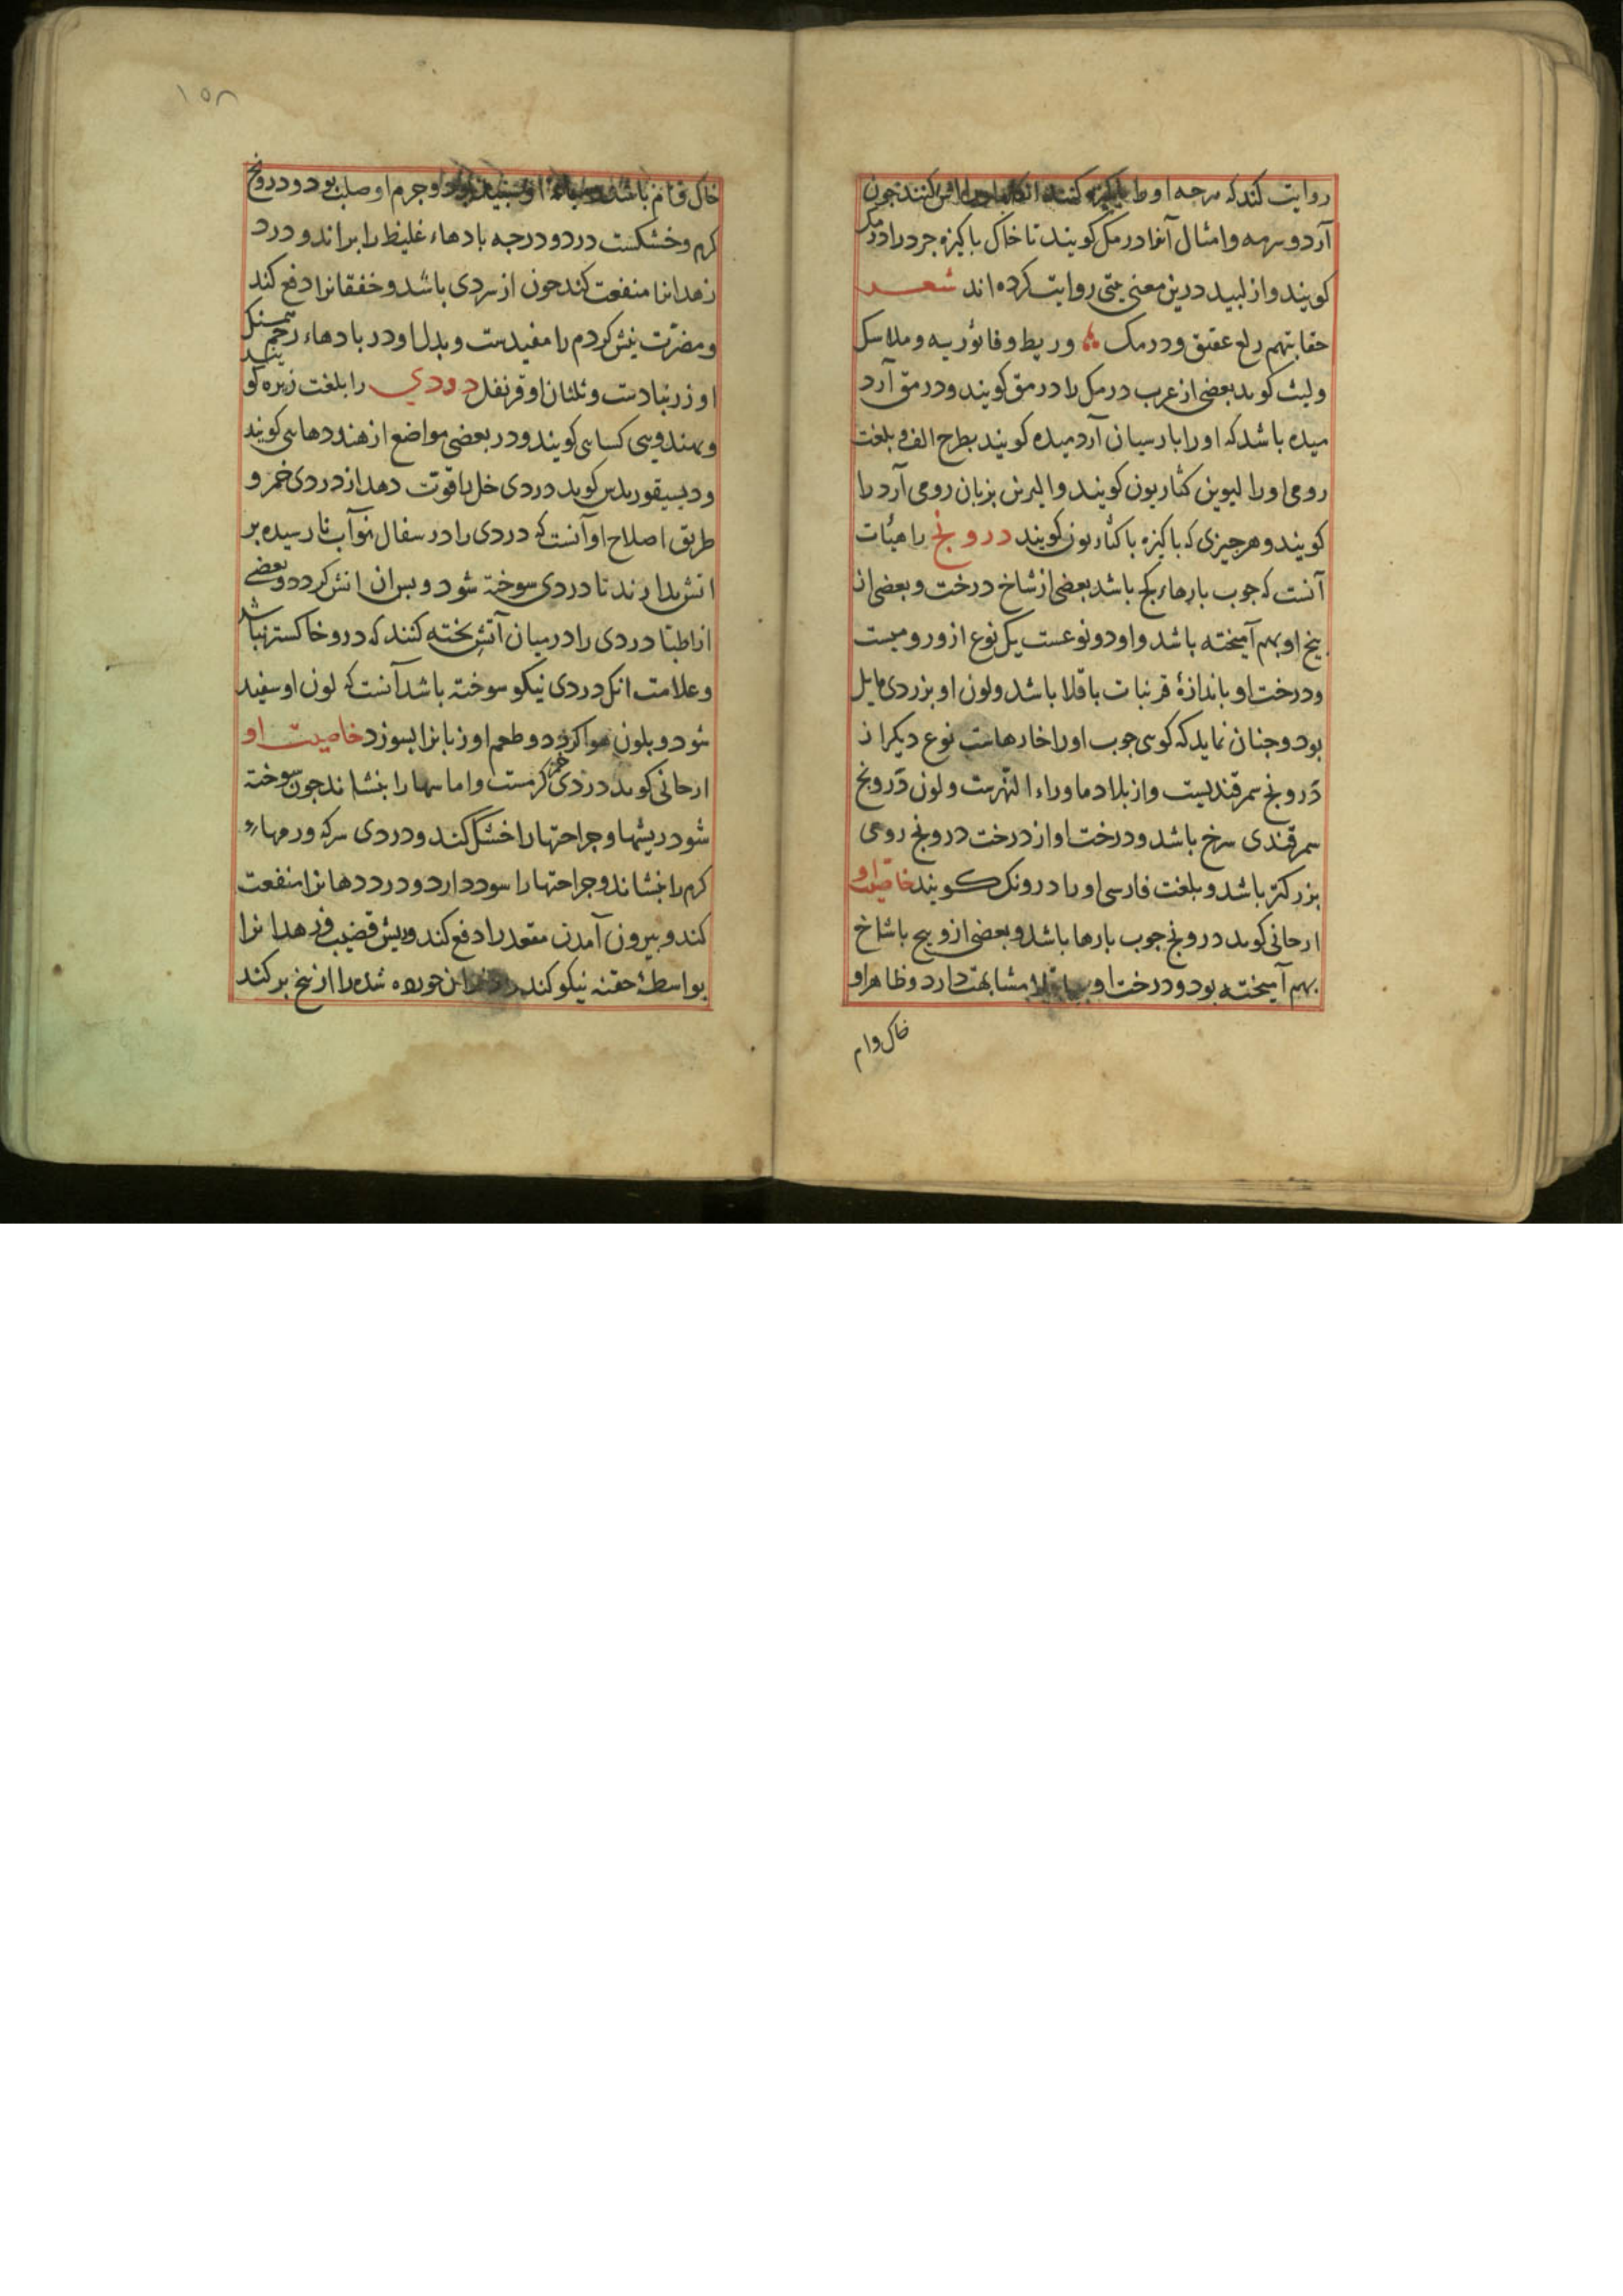 روایت کند که هرچه او را پاکیزه کنند کنند چون
آرد و سرمه و امثال آنرا درمک کویند تا خاک باکیزه جرد را درمک
کویند و از لبید درین معنی بیتی روایت کرده اند شعر
حقایبهم راح عتیق و درمک وریط وفاثوریه وملاسل
ولیث کوید بعضی از عرب درمک را درمق کویند و درمق آرد
میده باشد که او را بارسیان آرد میده کویند بطرح الف و بلغت
رومی او را لیوین کثاریون کویند و الیرنن بزبان رومی آرد را
کویند و هرچیزی که باکیزه با کثاریون کویند درونج را هیئات
آنست که جوب بارهاء کج باشد بعضی از شاخ درخت و بعضی از
بیخ او بهم آمیخته باشد و او دو نوعست یک نوع ازو رومیست
و درخت او باندازهٔ قد نبات باقلا باشد ولون او بزردی مایل
بود و جنان نماید که کوی جوب او را خارهاست نوع دیکر از
درونج سمرقندیست و از بلاد ماوراء النهرست و لون درونج
سمرقندی سرخ باشد و درخت او از درخت درونج رومی
بزرکتر باشد و بلغت فارسی او را درونک کویند خاصیت او
ارجانی کوید درونج جوب بارها باشد و بعضی ازو بیخ با شاخ
بهم آمیخته بود و درخت او بباقلا مشابهت دارد و ظاهر او
خاک وام
۱۵۸
خاک فام باشد او سپید بود و جرم او صلب بود و درونج
کرم و خشکست در دو درجه بادهاء غلیظ را براند و درد
زهدانرا منفعت کند جون از سردی باشد و خفقانرا دفع کند
و مضرت نیش کژدم را مفیدست و بدل او در بادهاء رحم همسنک
او زرنبادست و ثلثان او قرنفل دردی را بلغت زیره کویند
و بهندوی کسابی کویند و در بعضی مواضع از هند دهابی کویند
و دیسقوریدس کوید دردی خل باقوت دهد از دردی خمر و
طریق اصلاح او آنست که دردی را در سفال نو آب نارسیده بر
اتش بدارند تا دردی سوخته شود و بسان اتش کردد و بعضی
از اطبا دردی را در میان آتش بخته کنند که درو خاکستر نباشد
و علامت انک دردی نیکو سوخته باشد آنست که لون او سفید
شود و بلون هوا کردد و طعم او زبانرا بسوزد خاصیت او
ارجانی کوید دردی خمر کرمست و اماسها را بنشاند جون سوخته
شود ریشها و جراحتها را خشک کند و دردی سرکه ورمهاء
کرم را بنشاند و جراحتها را سود دارد و درد دهانرا منفعت
کند و بیرون آمدن مقعد را دفع کند و ریش قضیب و زهدانرا
بواسطهٔ حقنه نیکو کند خورده شده را از بیخ برکند